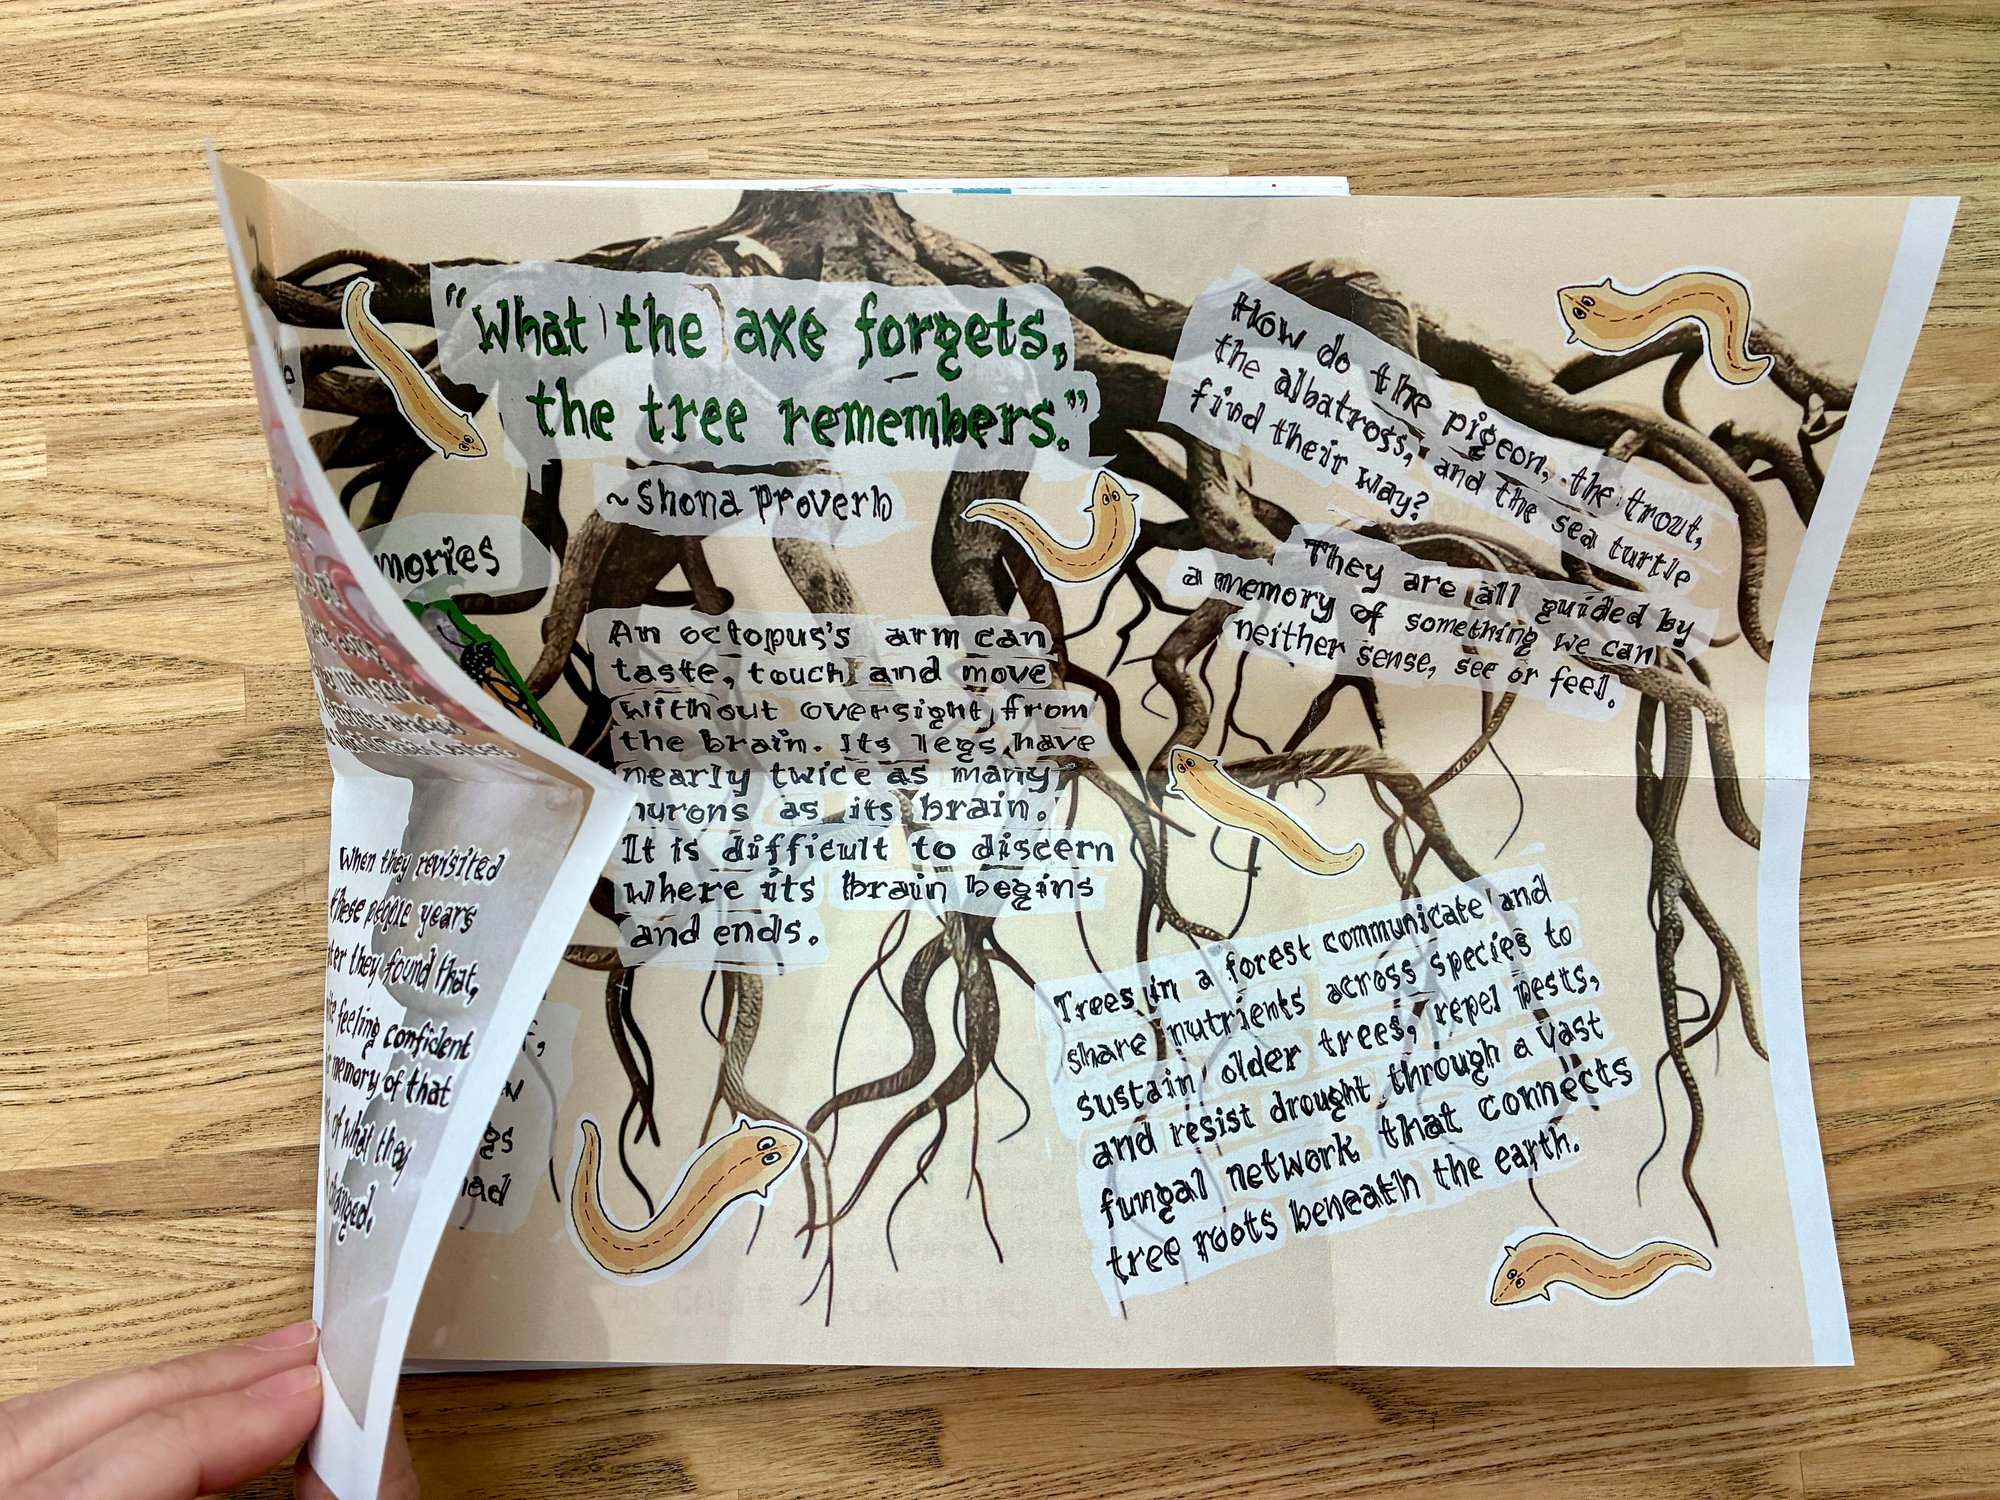 "What the axe forgets,
the tree remembers."
~Shona Proverb
mories
An octopus's arm can
taste, touch and move
without oversight from
the brain. Its legs have
nearly twice as many
nurons as its brain.
It is difficult to discern
where its brain begins
and ends.
How do the pigeon, the trout,
the albatross, and the sea turtle
find their way?
They are all guided by
a memory of something we can
neither sense, see or feel.
Trees in a forest communicate and
share nutrients across species to
sustain older trees, repel pests,
and resist drought through a vast
fungal network that connects
tree roots beneath the earth.
When they revisited
these people years
ter they found that,
feeling confident
memory of that
of what they
changed.
gs
ad